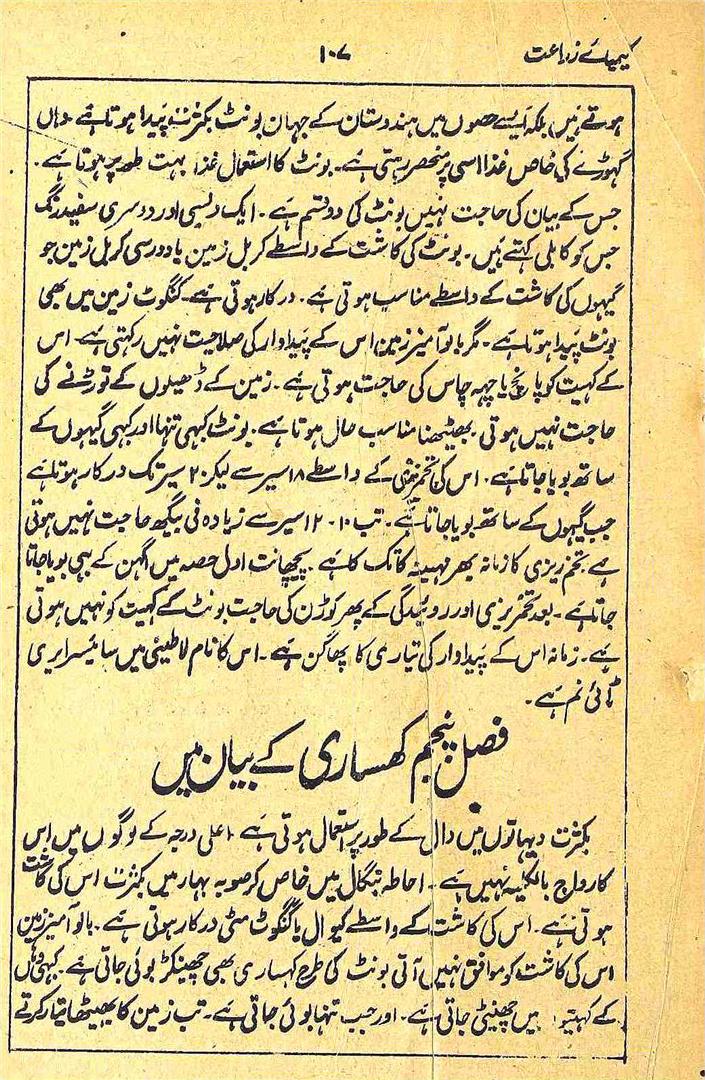 کیمیائے زراعت
۱۰۷
ہوتے ہیں بلکہ ایسے حصوں میں ہندوستان کے جہان بونٹ بکثرت پیدا ہوتا ہے وہاں
گہوڑے کی خاص غذا اسی پر منحصر رہتی ہے۔ بونٹ کا استعمال غذاً بہت طور پر ہوتا ہے۔
جس کے بیان کی حاجت نہیں بونٹ کی دو قسم ہے۔ ایک دیسی اور دوسری سفید رنگ
جس کو کابلی کہتے ہیں۔ بونٹ کی کاشت کے واسطے کربل زمین یا دورسی کربل زمین جو
گیہوں کی کاشت کے واسطے مناسب ہوتی ہے۔ درکار ہوتی ہے۔ گنگوٹ زمین میں بھی
بونٹ پیدا ہوتا ہے۔ مگر بالو آمیز زمین اس کے پیداوار کی صلاحیت نہیں رکھتی ہے۔ اس
کے کہیت کو پانچ یا چہہ چاس کی حاجت ہوتی ہے۔ زمین کے ڈھیلوں کے توڑنے کی
حاجت نہیں ہوتی بھیٹھنا مناسب حال ہوتا ہے۔ بونٹ کبھی تنہا اور کبھی گیہوں کے
ساتھ بویا جاتا ہے۔ اس کی تخم ریزی کے واسطے ۱۸ سیر سے لیکر ۲۰ سیر تک درکار ہوتا ہے
جب گیہوں کے ساتھ بویا جاتا ہے۔ تب ۱۰-۱۲ سیر سے زیادہ فی بیگھ حاجت نہیں ہوتی
ہے تخم ریزی کا زمانہ بھر مہینہ کاتک کا ہے۔ پچھانت اول حصہ میں اگہن کے بہی بویا جاتا
جاتا ہے۔ بعد تخم ریزی اور روئیدگی کے پھر کوڑن کی حاجت بونٹ کے کھیت کو نہیں ہوتی
ہے۔ زمانہ اس کے پیداوار کی تیاری کا پھاگن ہے۔ اس کا نام لاطینی میں سائیسر ایری
ٹائی نم ہے۔
فصل پنجم کھساری کے بیان میں
بکثرت دیہاتوں میں دال کے طور پر استعمال ہوتی ہے۔ اعلی درجہ کے لوگوں میں اس
کا رواج بالکلیہ نہیں ہے۔ احاطہ بنگال میں خاص کر صوبہ بہار میں بکثرت اس کی کاشت
ہوتی ہے۔ اس کی کاشت کے واسطے کیوال یا گنگوٹ مٹی درکار ہوتی ہے۔ بالو آمیز زمین
اس کی کاشت کو موافق نہیں آتی بونٹ کی طرح کہساری بھی چھینکڑ بوئی جاتی ہے۔ کبھی دہان
کے کہیتوں میں چھینٹی جاتی ہے۔ اور جب تنہا بوئی جاتی ہے۔ تب زمین کا بھیٹھا تیار کرتے